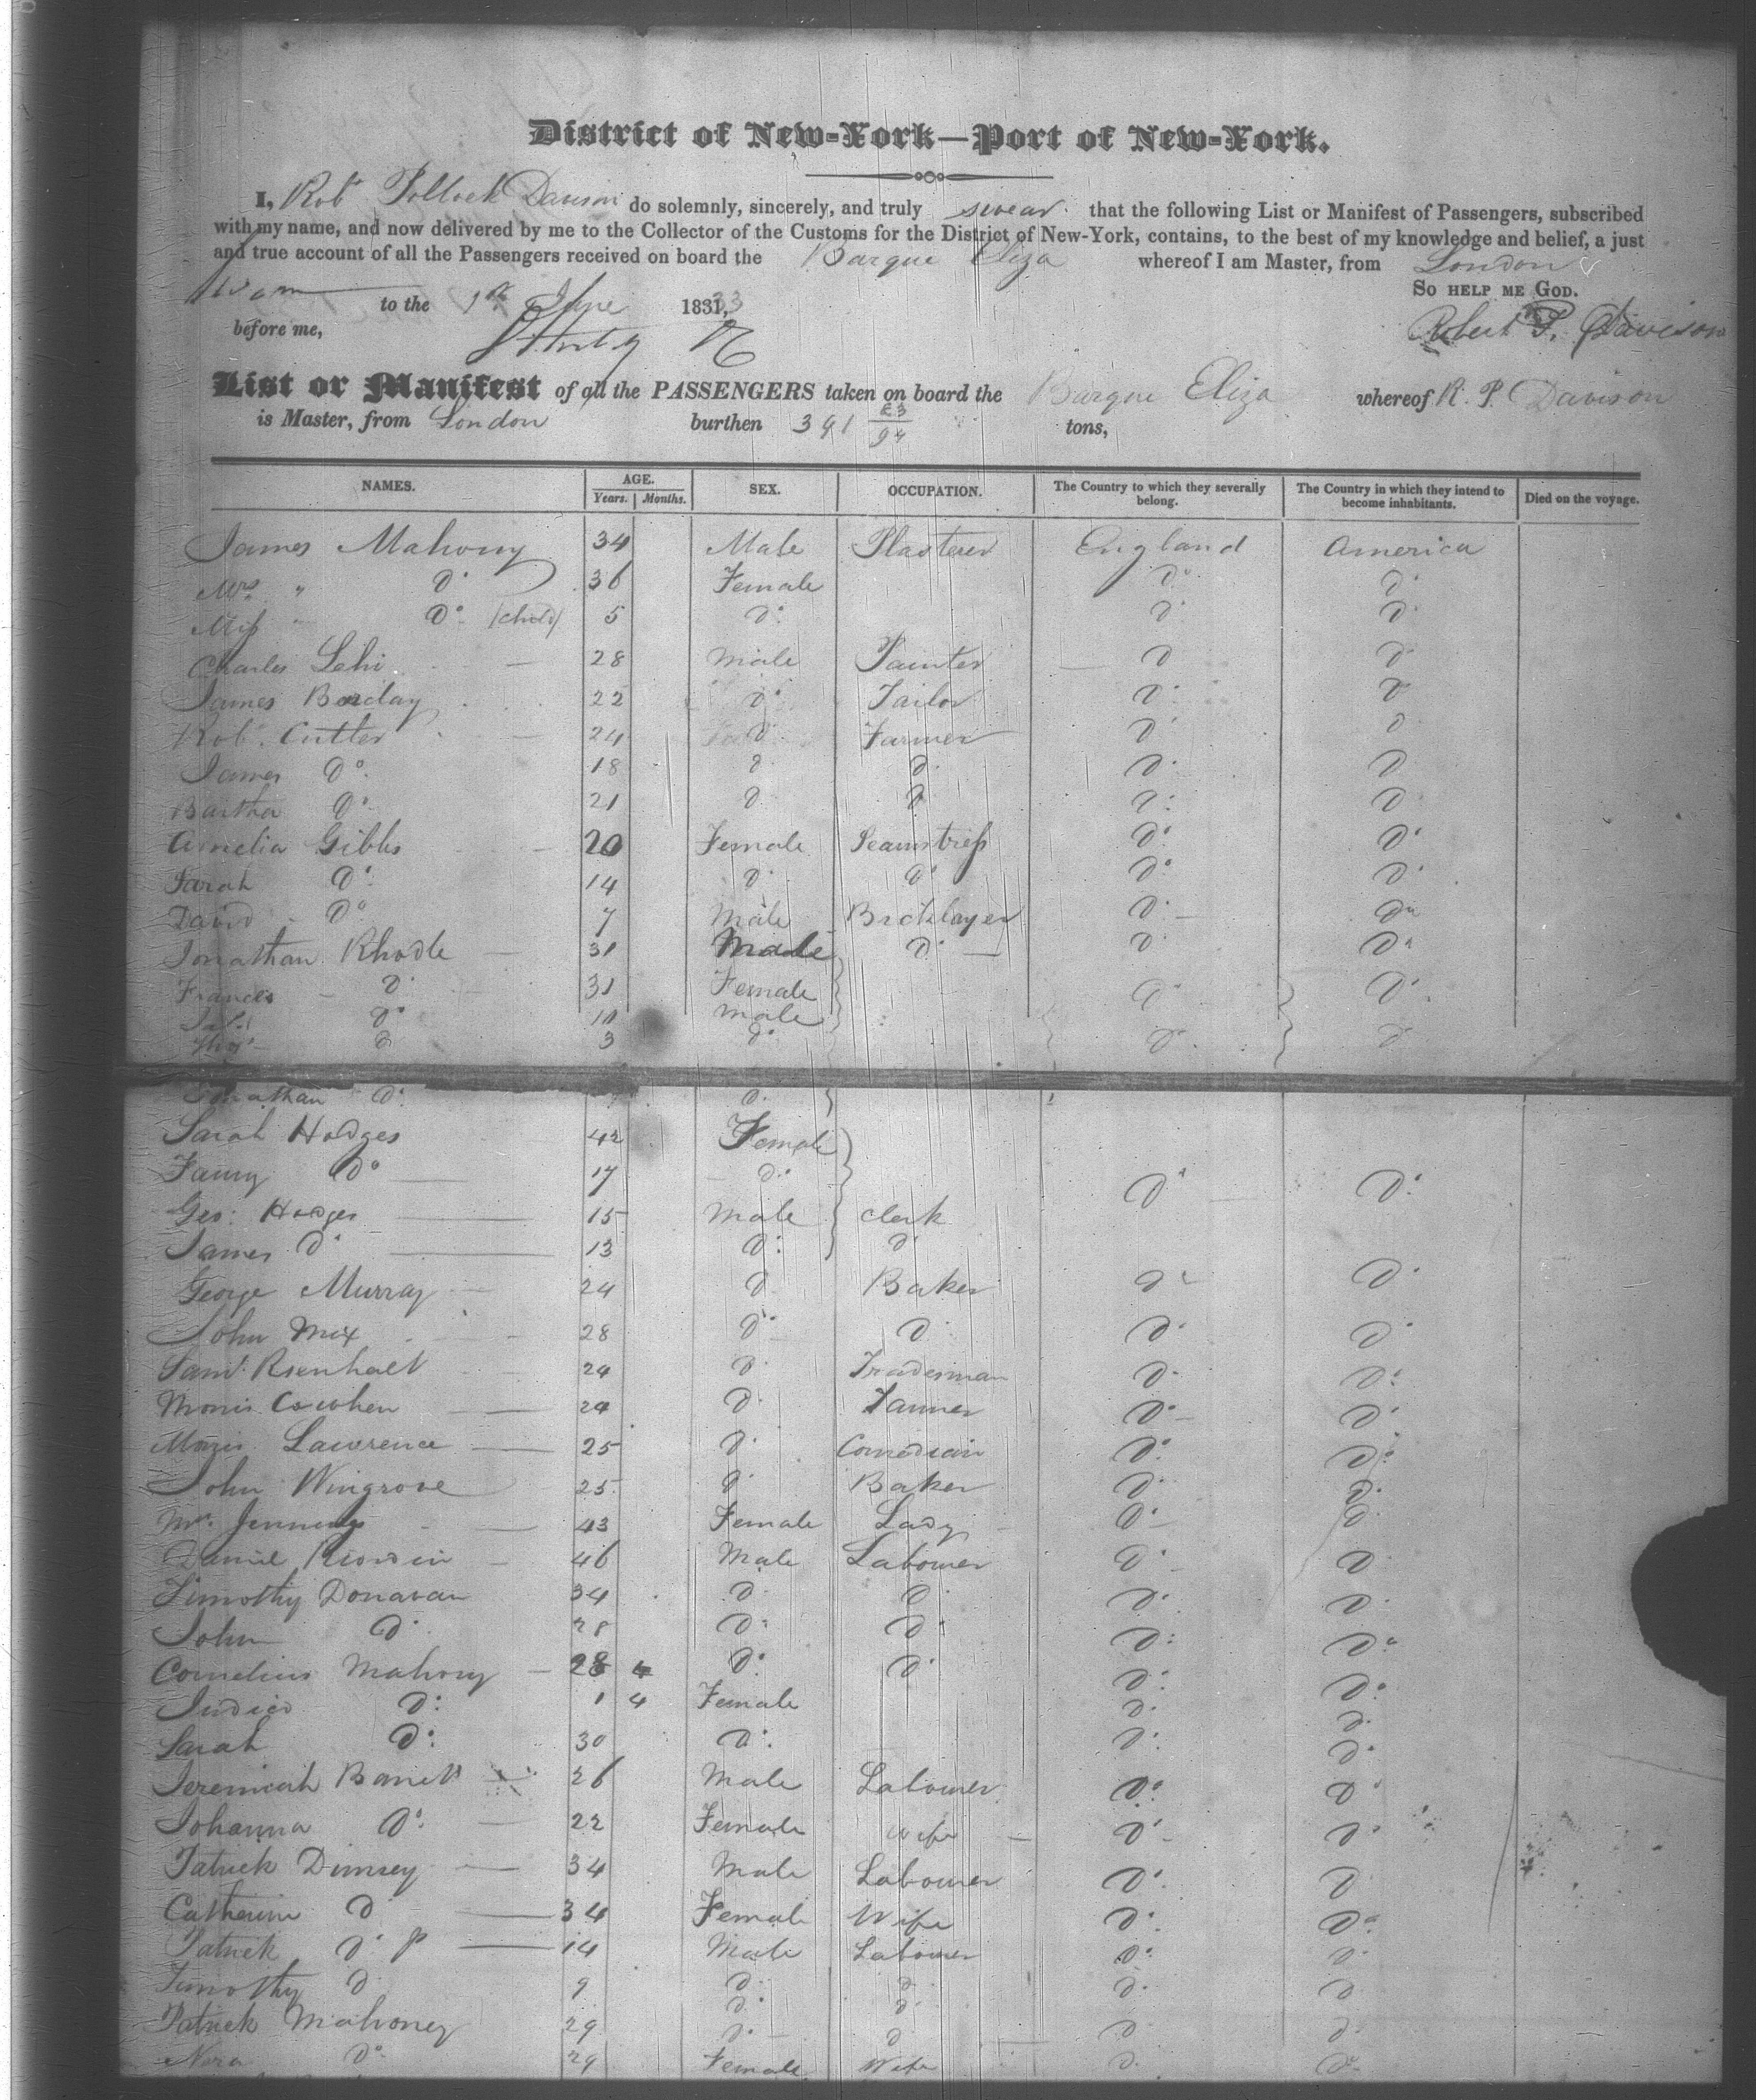 District of New-York—Port of New-York.
I, Robt Pollock Davison do solemnly, sincerely, and truly swear that the following List or Manifest of Passengers, subscribed
with my name, and now delivered by me to the Collector of the Customs for the District of New-York, contains, to the best of my knowledge and belief, a just
and true account of all the Passengers received on board the Barque Eliza whereof I am Master, from London
Sworn to the 1st June 1833
So help me God.
before me,
Robert P. Davison
List or Manifest of all the PASSENGERS taken on board the Barque Eliza whereof R. P. Davison
is Master, from London burthen 391 tons,
NAMES. AGE. SEX. OCCUPATION. The Country to which they severally belong. The Country in which they intend to become inhabitants. Died on the voyage.
Years. Months.
James Mahony 34 Male Plasterer England America
Mrs " Do 36 Female Do Do
Miss " Do (child) 5 Do Do Do
Charles Lehi 28 Male Painter Do Do
James Barclay 22 Do Tailor Do Do
Robt. Cutler 24 Do Farmer Do Do
James Do 18 Do Do Do Do
Bartha Do 21 Do Do Do Do
Amelia Gibbs 20 Female Seamstress Do Do
Sarah Do 14 Do Do Do Do
David Do 7 Male Bricklayer Do Do
Jonathan Rhodle 31 Male Do Do Do
Frances Do 31 Female Do Do
Do 10 Male
Do 3 Do Do Do
Jonathan Do Do
Sarah Hodges 42 Female
Fanny Do 17 Do Do Do
Geo: Hodges 15 Male Clerk
James Do 13 Do Do
George Murray 24 Do Baker Do Do
John Mix 28 Do Do Do Do
Saml. Rienhalt 24 Do Tradesman Do Do
Morris Cowhen 24 Do Tanner Do Do
Morris Lawrence 25 Do Comedian Do Do
John Wingrove 25 Do Baker Do Do
Mrs. Jennings 43 Female Lady Do Do
Daniel Riordin 46 Male Labourer Do Do
Timothy Donavan 34 Do Do Do Do
John Do 28 Do Do Do Do
Cornelius Mahony 28 4 Do Do Do Do
Judico Do 1 4 Female Do Do
Sarah Do 30 Do Do Do
Jeremiah Barrett 26 Male Labourer Do Do
Johanna Do 22 Female Wife Do Do
Patrick Dimsey 34 Male Labourer Do Do
Catherine Do 34 Female Wife Do Do
Patrick Do 14 Male Labourer Do Do
Timothy Do 9 Do Do Do Do
Patrick Mahoney 29 Do Do Do Do
Nora Do 29 Female Wife Do Do